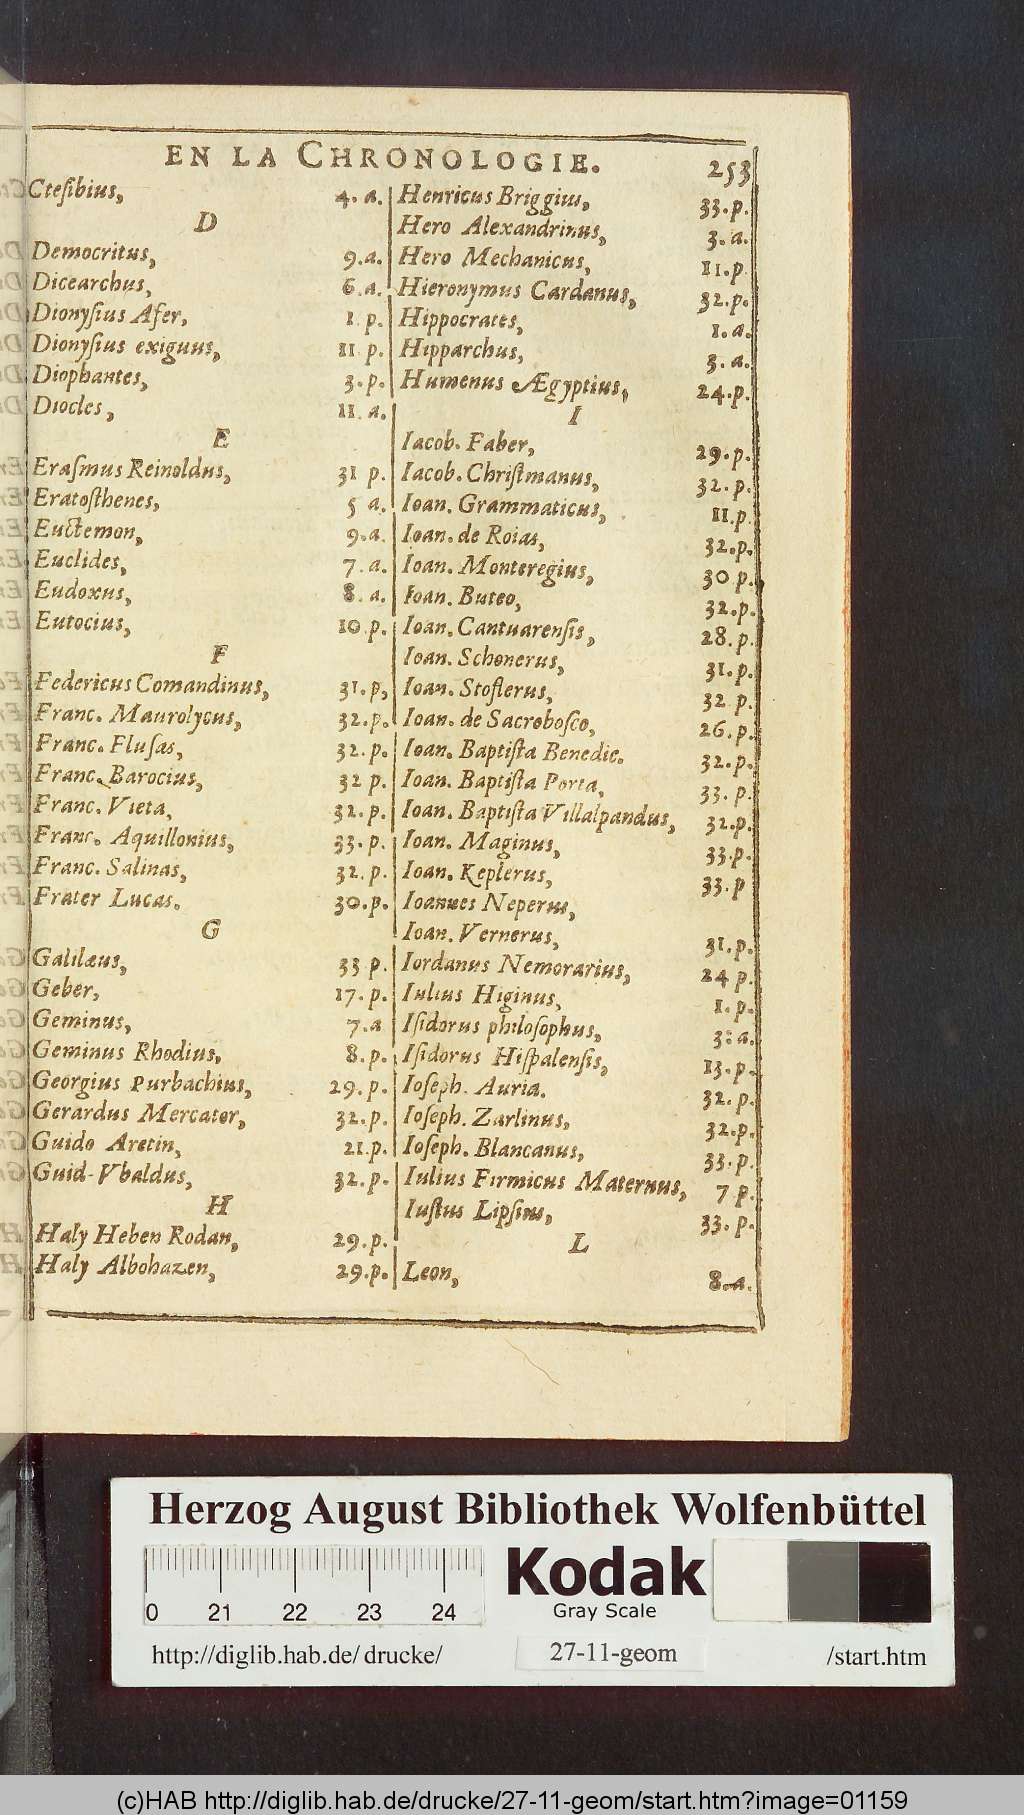 EN LA CHRONOLOGIE. 253
Cteſibius, 4. a.
D
Democritus, 9.a.
Dicearchus, 6.a.
Dionyſius Afer, 1 p.
Dionyſius exiguus, 11 p.
Diophantes, 3.p.
Diocles, 11.a.
E
Eraſmus Reinoldus, 31 p.
Eratoſthenes, 5 a.
Euctemon, 9.a.
Euclides, 7.a.
Eudoxus, 8.a.
Eutocius, 10.p.
F
Federicus Comandinus, 31.p,
Franc. Maurolycus, 32.p.
Franc. Fluſas, 32.p.
Franc. Barocius, 32 p.
Franc. Vieta, 32.p.
Franc. Aquillonius, 33.p.
Franc. Salinas, 32.p.
Frater Lucas. 30.p.
G
Galilæus, 33 p.
Geber, 17.p.
Geminus, 7.a
Geminus Rhodius, 8.p.
Georgius Purbachius, 29.p.
Gerardus Mercator, 32.p.
Guido Aretin, 21.p.
Guid-Vbaldus, 32.p.
H
Haly Heben Rodan, 29.p.
Haly Albohazen, 29.p.
Henricus Briggius, 33.p.
Hero Alexandrinus, 3.a.
Hero Mechanicus, 11.p.
Hieronymus Cardanus, 32.p.
Hippocrates, 1.a.
Hipparchus, 3.a.
Humenus Ægyptius, 24.p.
I
Iacob. Faber, 29.p.
Iacob. Chriſtmanus, 32.p.
Ioan. Grammaticus, 11.p.
Ioan. de Roias, 32.p.
Ioan. Monteregius, 30 p.
Ioan. Buteo, 32.p.
Ioan. Cantuarenſis, 28.p.
Ioan. Schonerus, 31.p.
Ioan. Stoflerus, 32 p.
Ioan. de Sacroboſco, 26.p.
Ioan. Baptiſta Benedic. 32.p.
Ioan. Baptiſta Porta, 33.p.
Ioan. Baptiſta Villalpandus, 32.p.
Ioan. Maginus, 33.p.
Ioan. Keplerus, 33.p
Ioannes Neperus,
Ioan. Vernerus, 31.p.
Iordanus Nemorarius, 24 p.
Iulius Higinus, 1.p.
Iſidorus philoſophus, 3.a.
Iſidorus Hiſpalenſis, 13.p.
Ioſeph. Auria. 32.p.
Ioſeph. Zarlinus, 32.p.
Ioſeph. Blancanus, 33.p.
Iulius Firmicus Maternus, 7 p.
Iuſtus Lipſius, 33.p.
L
Leon, 8.a.
Herzog August Bibliothek Wolfenbüttel
Kodak
Gray Scale
0 21 22 23 24
http://diglib.hab.de/drucke/ 27-11-geom /start.htm
(c)HAB http://diglib.hab.de/drucke/27-11-geom/start.htm?image=01159